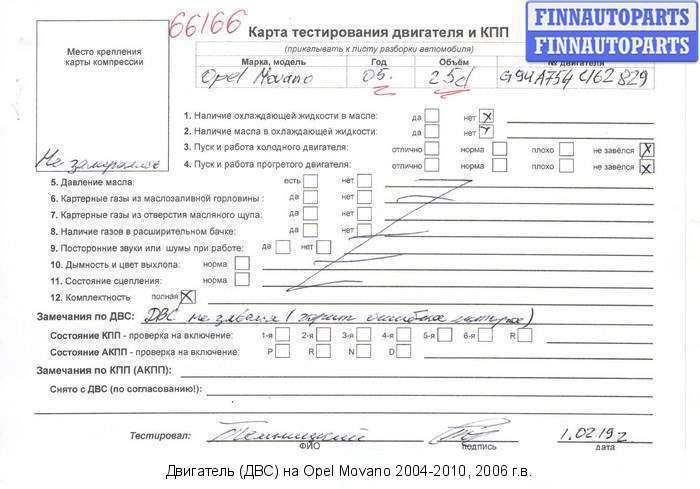 66166
Карта тестирования двигателя и КПП
(прикалывать к листу разборки автомобиля)
FINNAUTOPARTS
FINNAUTOPARTS
Место крепления
карты компрессии
Марка, модель Год Объём № двигателя
Opel Movano 05. 2.5d G9UA754 C162829
1. Наличие охлаждающей жидкости в масле: да нет X
2. Наличие масла в охлаждающей жидкости: да нет
3. Пуск и работа холодного двигателя: отлично норма плохо не завёлся X
4. Пуск и работа прогретого двигателя: отлично норма плохо не завёлся X
Не замерялась
5. Давление масла: есть нет
6. Картерные газы из маслозаливной горловины : да нет
7. Картерные газы из отверстия масляного щупа: да нет
8. Наличие газов в расширительном бачке: да нет
9. Посторонние звуки или шумы при работе: да нет
10. Дымность и цвет выхлопа: норма
11. Состояние сцепления: норма
12. Комплектность полная X
Замечания по ДВС: ДВС не завелся (горит ошибка)
Состояние КПП - проверка на включение: 1-я 2-я 3-я 4-я 5-я 6-я R
Состояние АКПП - проверка на включение: P R N D
Замечания по КПП (АКПП):
Снято с ДВС (по согласованию!):
Тестировал: 1.02.19г
ФИО подпись дата
Двигатель (ДВС) на Opel Movano 2004-2010, 2006 г.в.